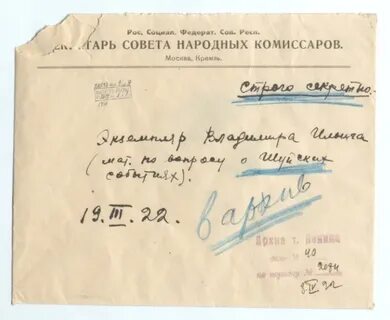 Рос. Социал. Федерат. Сов. Респ.
ЕКРЕТАРЬ СОВЕТА НАРОДНЫХ КОМИССАРОВ.
Москва, Кремль.
Строго секретно.
Экземпляр Владимира Ильича
(мат. по вопросу о Шуйских
событиях).
19.III.22.
в архив
Архив т. Ленина
№ 40
по